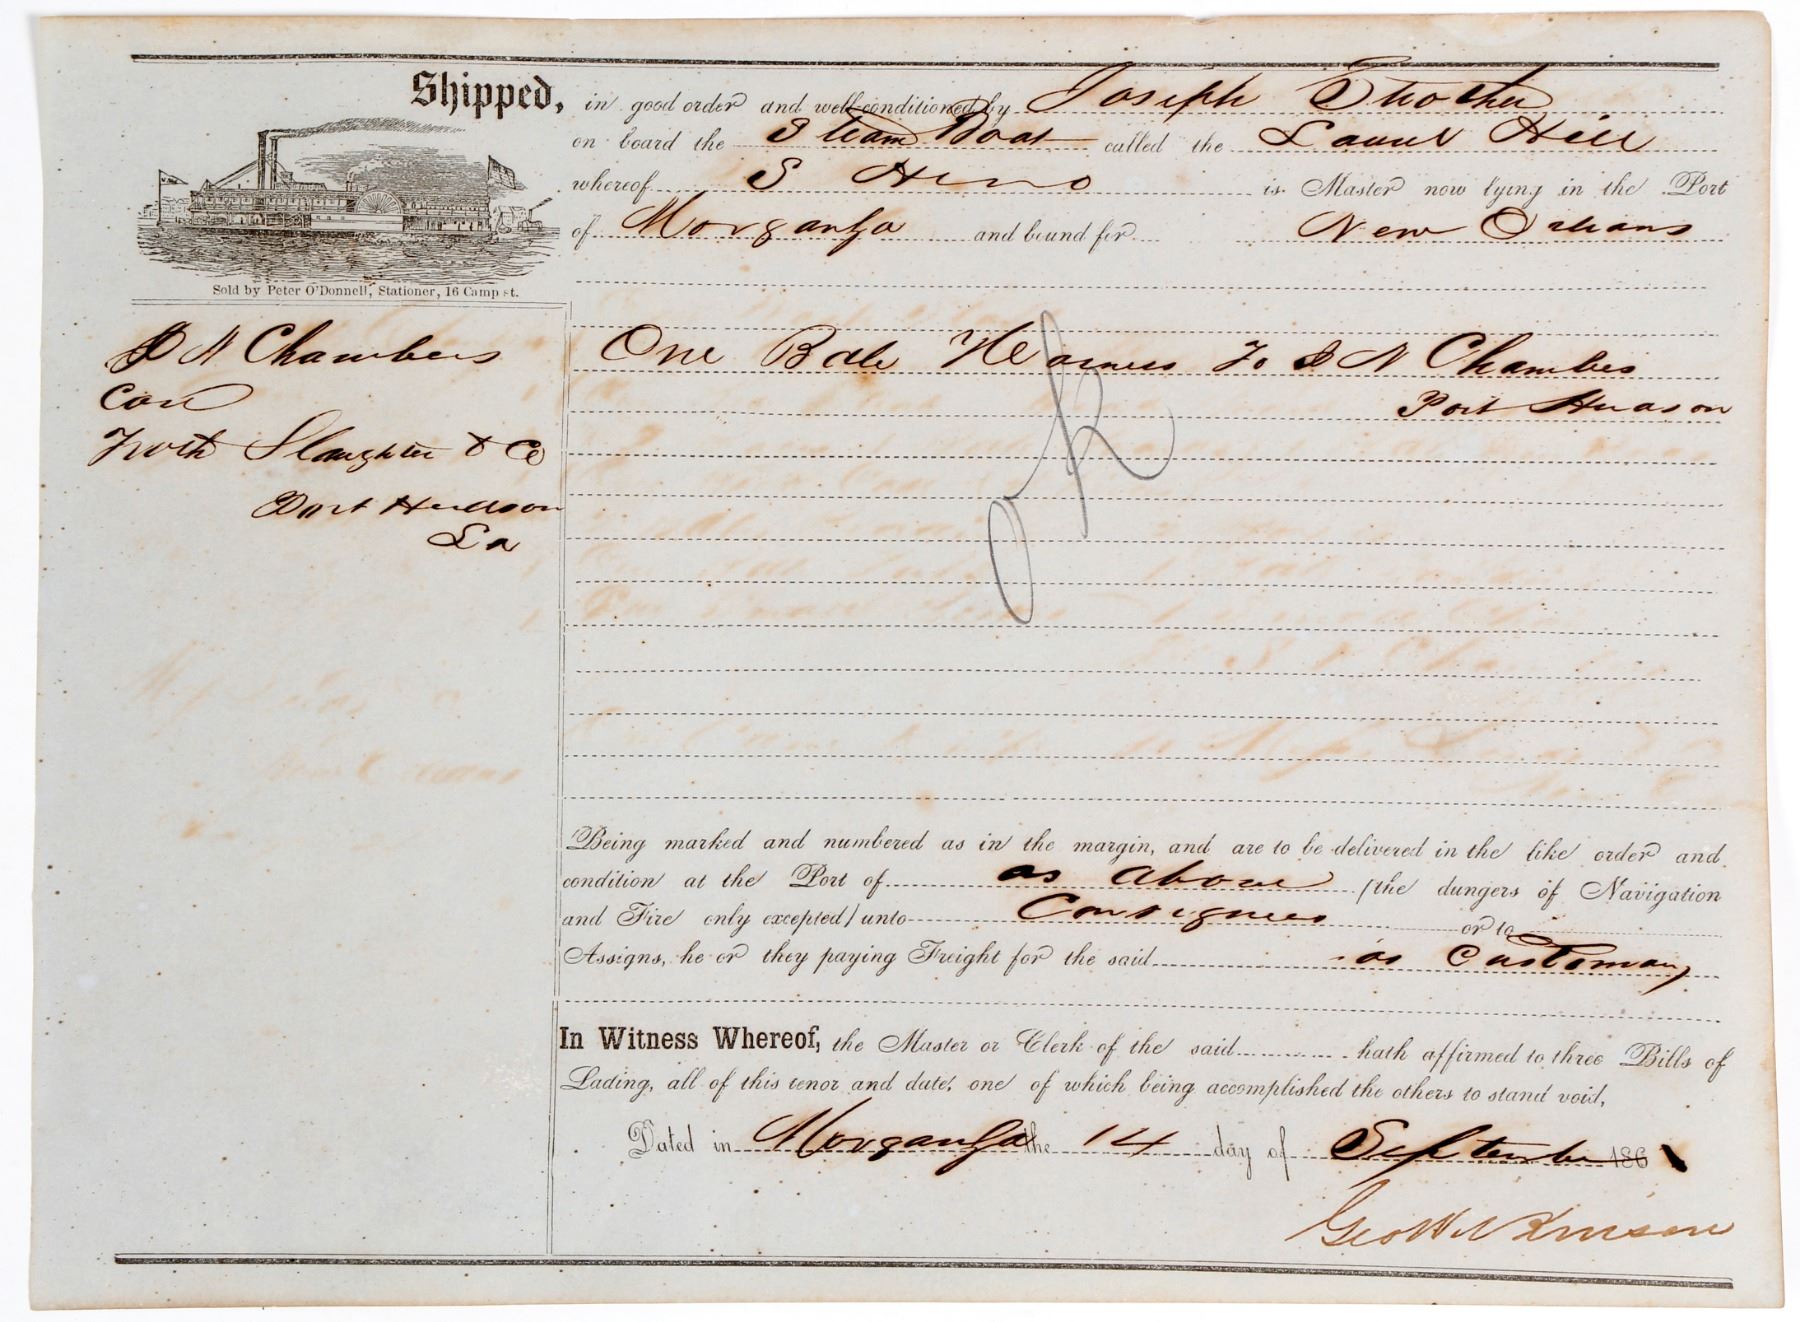 Shipped, in good order and well-conditioned by Joseph Strother
on board the Steam Boat called the Laurel Hill
whereof S Heno is Master now lying in the Port
of Morganza and bound for New Orleans
Sold by Peter O'Donnell, Stationer, 16 Camp st.
J N Chambers
Care
Troth Slaughter & Co
Port Hudson
La
One Bale Harness To J N Chambers
Port Hudson
ok
Being marked and numbered as in the margin, and are to be delivered in the like order and
condition at the Port of as above (the dangers of Navigation
and Fire only excepted) unto Consignees or to
Assigns, he or they paying Freight for the said as Customary
In Witness Whereof, the Master or Clerk of the said hath affirmed to three Bills of
Lading, all of this tenor and date, one of which being accomplished the others to stand void,
Dated in Morganza the 14 day of September 1861
Geo